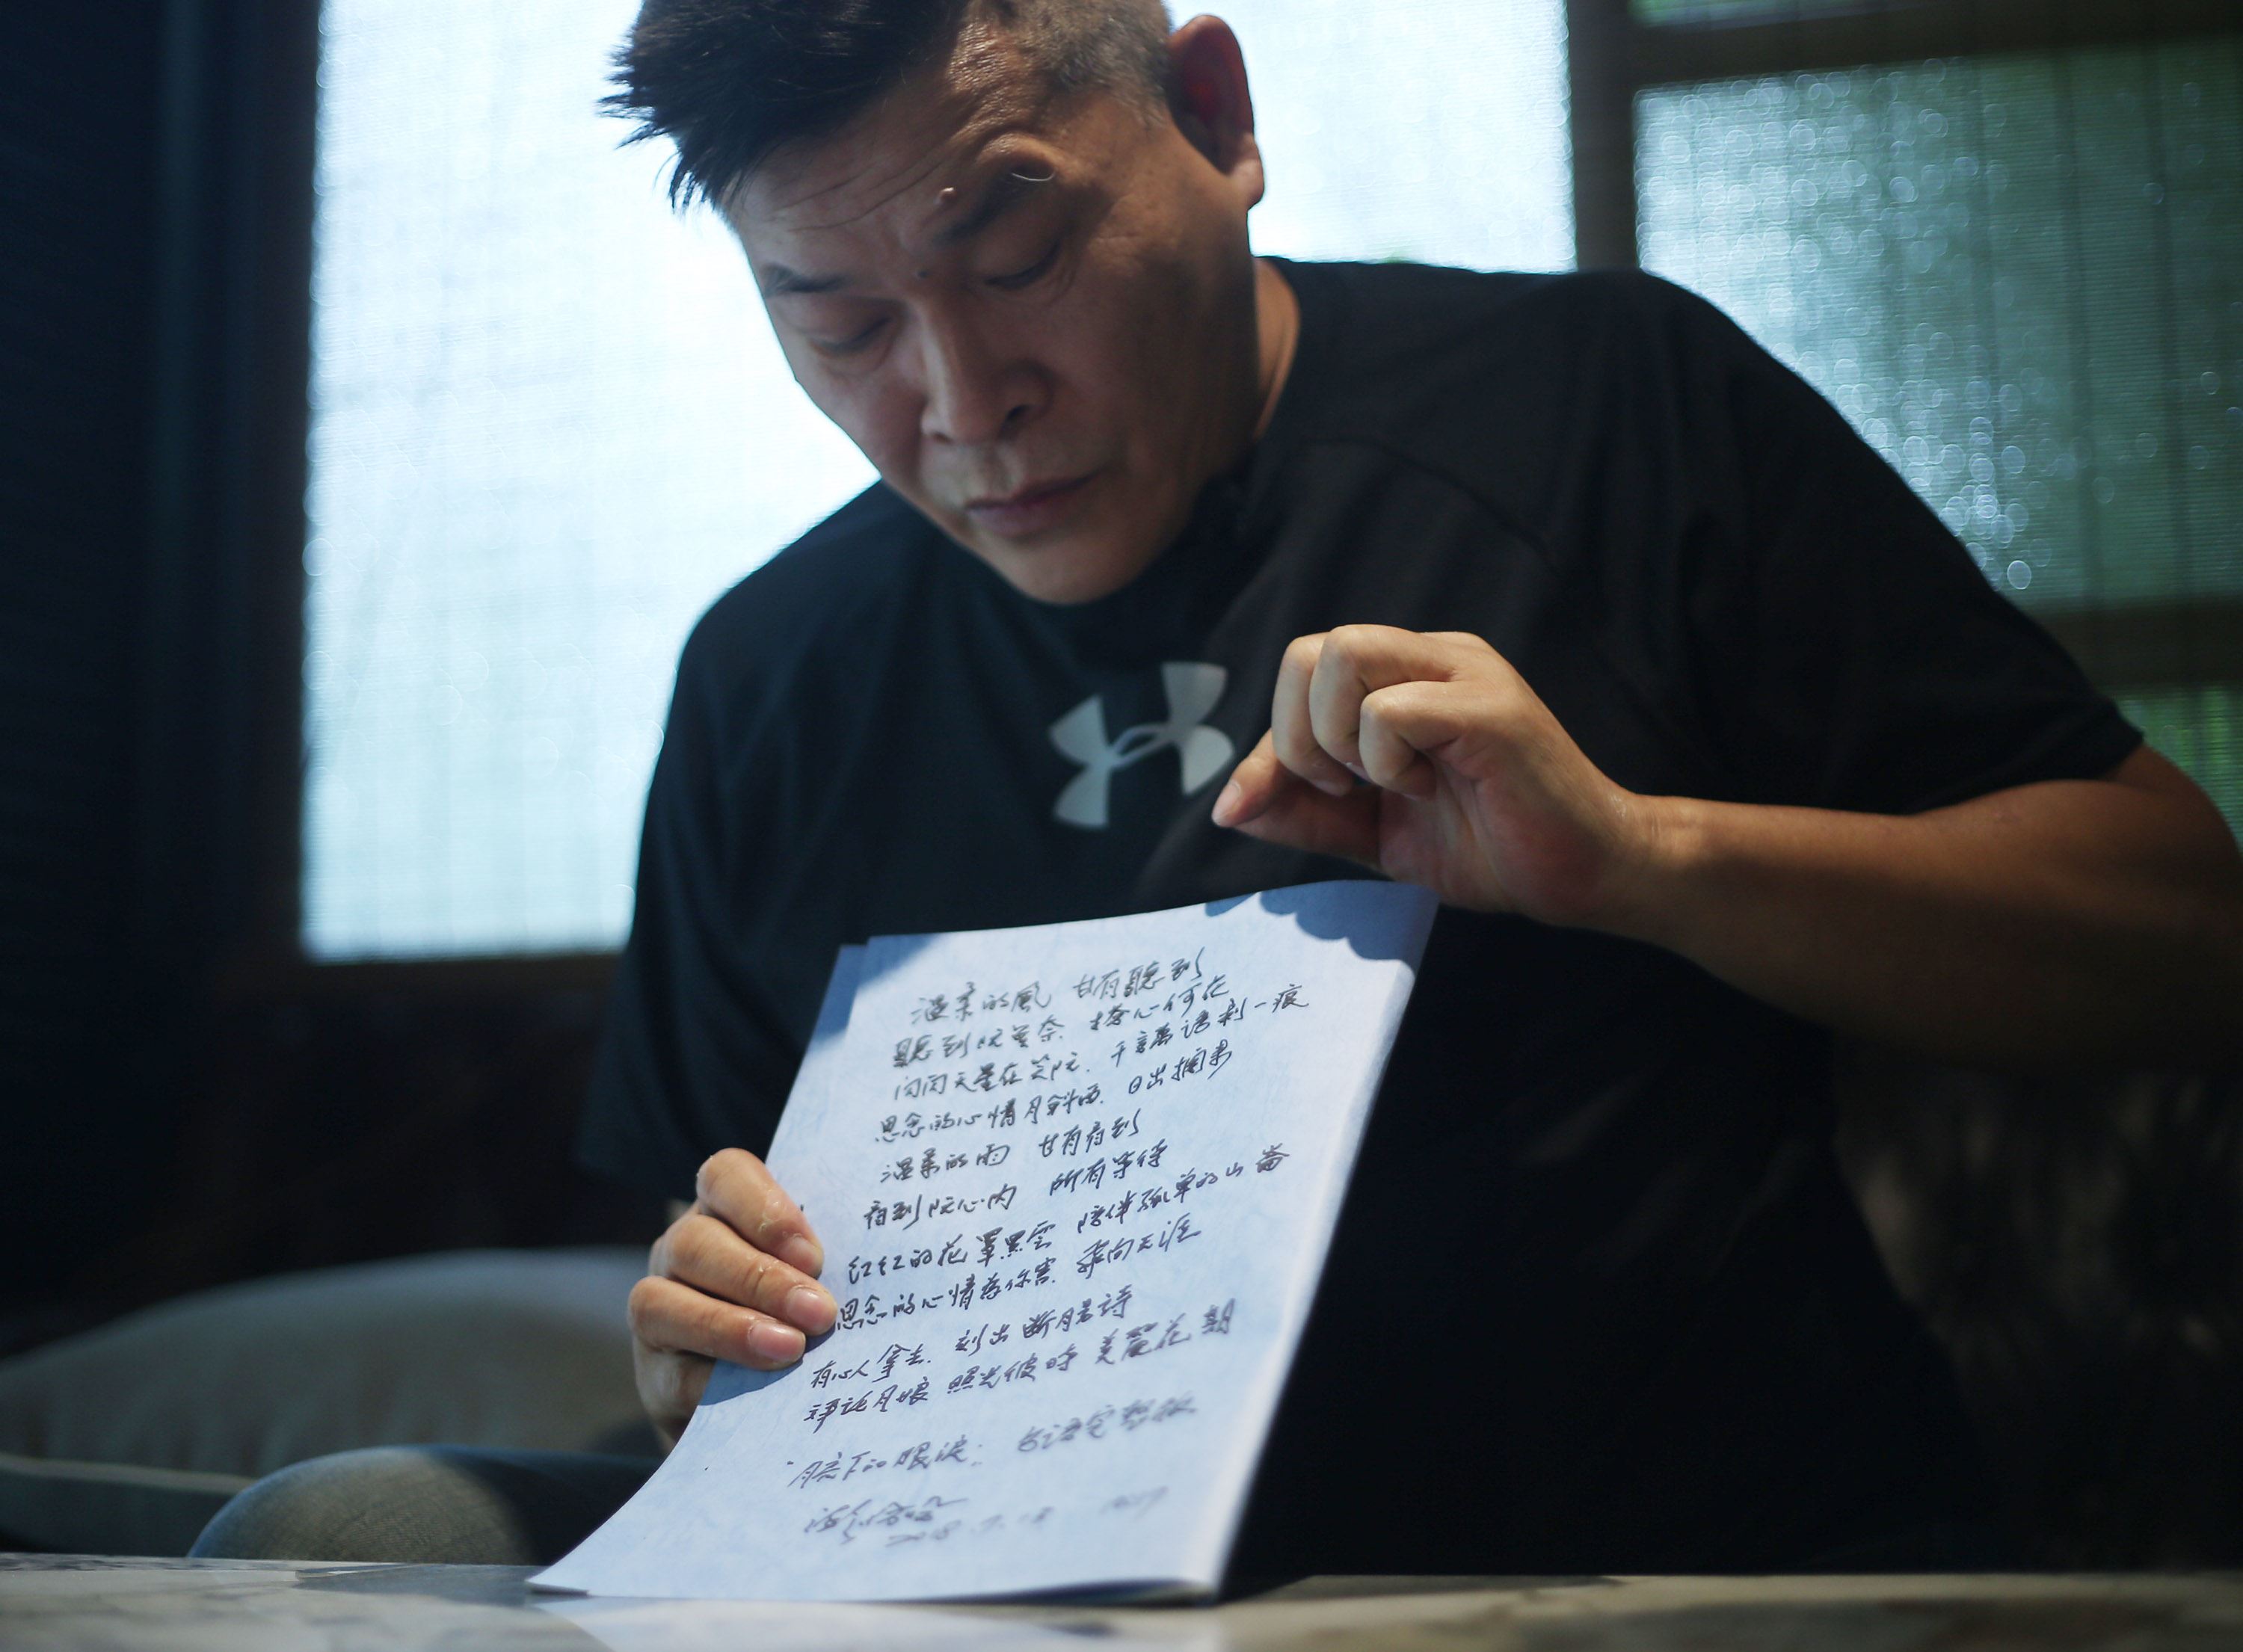 溫柔的風 甘有聽到
聽到阮無奈. 撩心何在
閃閃天星在笑阮. 千言萬語剩一痕
思念的心情月斜西. 日出摘果
溫柔的雨 甘有看到
看到阮心內 所有等待
紅紅的花罩黑雲 陪伴孤單的山崙
思念的心情為你害. 走向天涯
有心人拿去. 刻出斷腸詩
拜託月娘 照光彼時 美麗花期
下的眼淚: 台語完整版